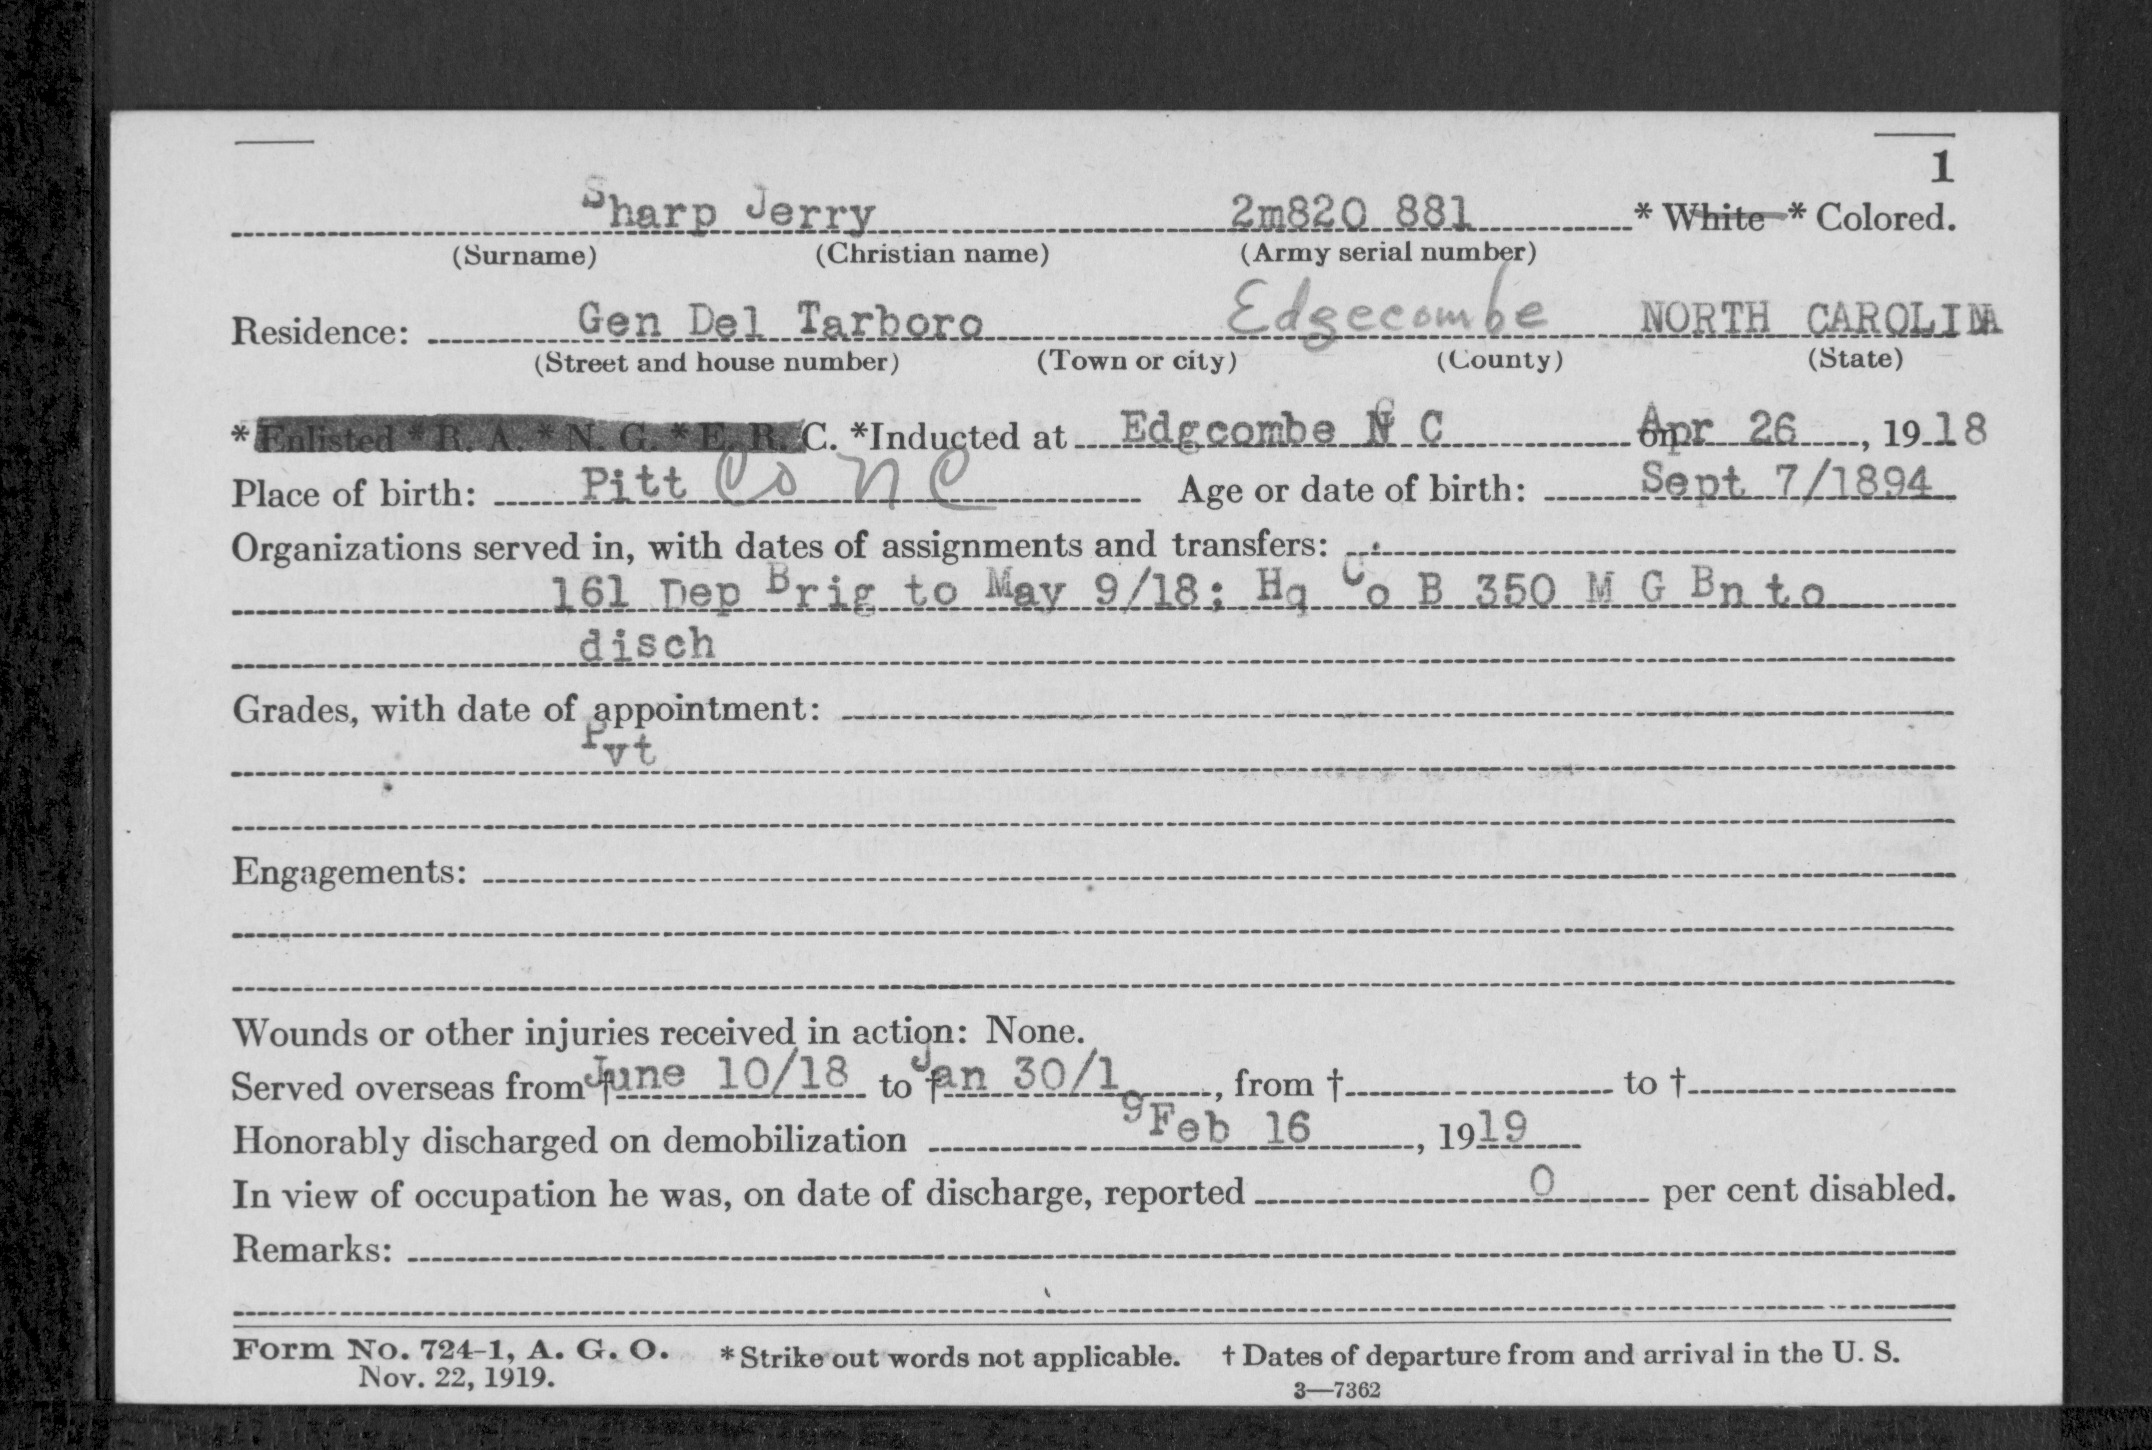 1
Sharp Jerry 2m820 881 * White * Colored.
(Surname) (Christian name) (Army serial number)
Residence: Gen Del Tarboro Edgecombe NORTH CAROLINA
(Street and house number) (Town or city) (County) (State)
* Enlisted * R. A. * N. G. * E. R. C. *Inducted at Edgcombe N C on Apr 26, 1918
Place of birth: Pitt Co N C Age or date of birth: Sept 7/1894
Organizations served in, with dates of assignments and transfers:
161 Dep Brig to May 9/18; Hq Co B 350 M G Bn to
disch
Grades, with date of appointment:
Pvt
Engagements:
Wounds or other injuries received in action: None.
Served overseas from † June 10/18 to † Jan 30/19, from † to †
Honorably discharged on demobilization Feb 16, 1919
In view of occupation he was, on date of discharge, reported 0 per cent disabled.
Remarks:
Form No. 724-1, A. G. O. * Strike out words not applicable. † Dates of departure from and arrival in the U. S.
Nov. 22, 1919. 3—7362